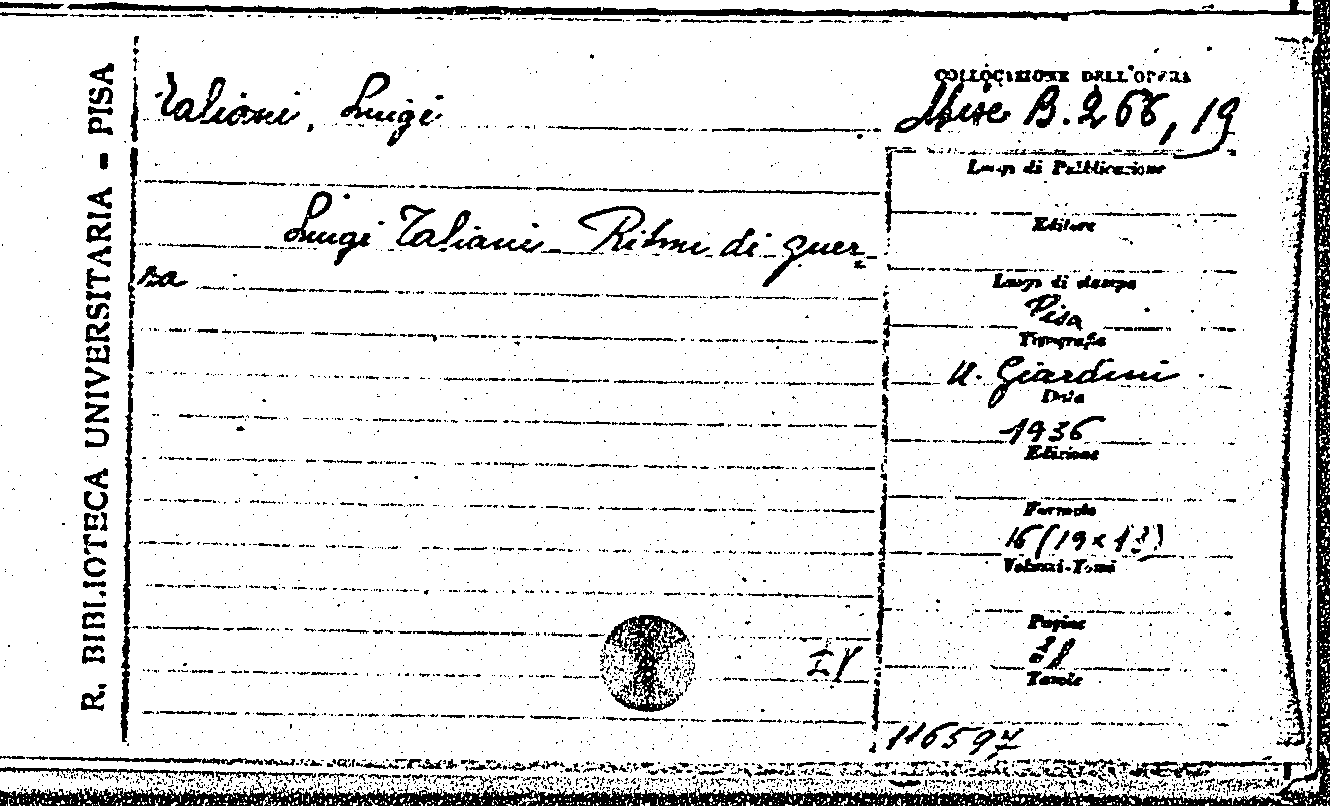 R. BIBLIOTECA UNIVERSITARIA - PISA
Taliani, Luigi
Luigi Taliani - Ritmi di guer-
ra
COLLOCAZIONE DELL'OPERA
Misc B. 268, 19
Luogo di Pubblicazione
Editore
Luogo di stampa
Pisa
Tipografia
U. Giardini
Data
1936
Edizione
Formato
16 (19 x 13)
Volumi-Tomi
Pagine
Tavole
116597